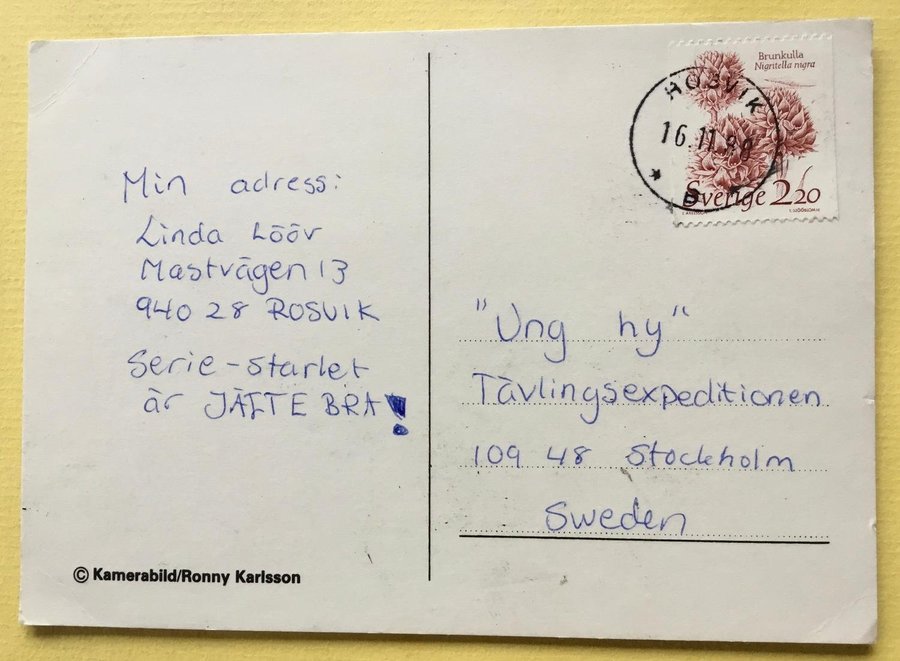 Min adress:
Linda Lööv
Mastvägen 13
940 28 ROSVIK
Serie-starlet
är JÄTTE BRA!
© Kamerabild/Ronny Karlsson
Brunkulla
Nigritella nigra
16.11.
Sverige 220
"Ung hy"
Tävlingsexpeditionen
109 48 Stockholm
Sweden